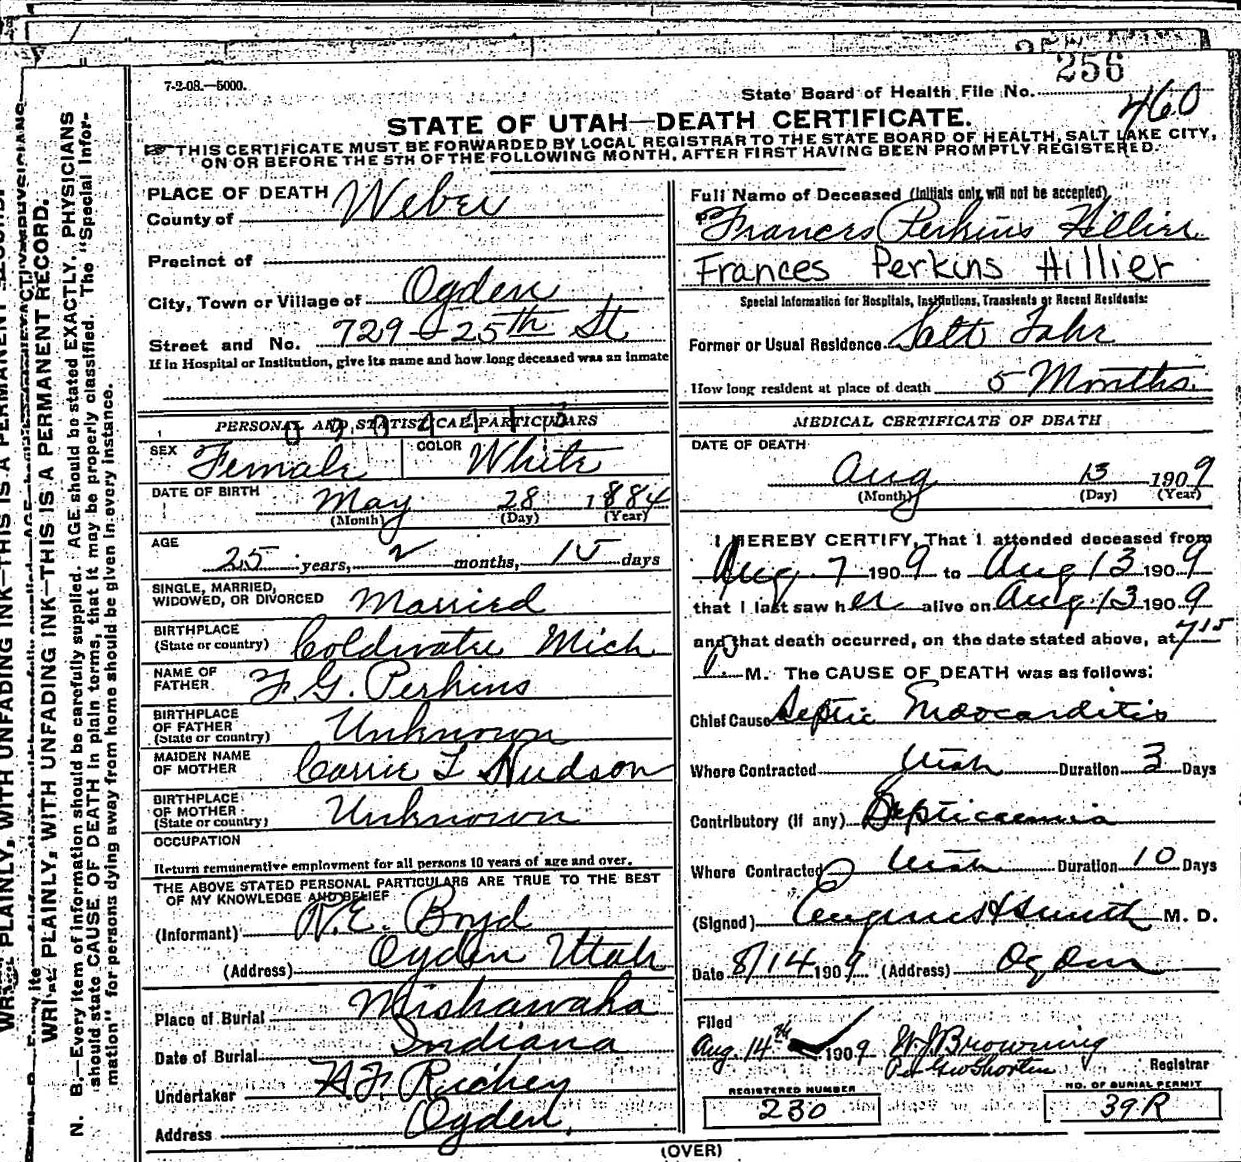 256
7-2-08.—5000.
State Board of Health File No.
460
STATE OF UTAH—DEATH CERTIFICATE.
THIS CERTIFICATE MUST BE FORWARDED BY LOCAL REGISTRAR TO THE STATE BOARD OF HEALTH, SALT LAKE CITY,
ON OR BEFORE THE 5TH OF THE FOLLOWING MONTH, AFTER FIRST HAVING BEEN PROMPTLY REGISTERED.
PLACE OF DEATH
County of Weber
Precinct of
City, Town or Village of Ogden
Street and No. 729 - 25th St
If in Hospital or Institution, give its name and how long deceased was an inmate
PERSONAL AND STATISTICAL PARTICULARS
SEX Female COLOR White
DATE OF BIRTH May 28 1884
(Month) (Day) (Year)
AGE 25 years, 2 months, 15 days
SINGLE, MARRIED,
WIDOWED, OR DIVORCED Married
BIRTHPLACE
(State or country) Coldwater Mich
NAME OF
FATHER F. G. Perkins
BIRTHPLACE
OF FATHER
(State or country) Unknown
MAIDEN NAME
OF MOTHER Carrie L Hudson
BIRTHPLACE
OF MOTHER
(State or country) Unknown
OCCUPATION
Return remunerative employment for all persons 10 years of age and over.
THE ABOVE STATED PERSONAL PARTICULARS ARE TRUE TO THE BEST
OF MY KNOWLEDGE AND BELIEF
(Informant) W. E. Boyd
(Address) Ogden Utah
Place of Burial Mishawaka
Indiana
Date of Burial
Undertaker
Address Ogden.
Full Name of Deceased (Initials only will not be accepted)
Frances Perkins Hillier
Frances Perkins Hillier
Special Information for Hospitals, Institutions, Transients or Recent Residents:
Former or Usual Residence Salt Lake
How long resident at place of death 5 Months.
MEDICAL CERTIFICATE OF DEATH
DATE OF DEATH
Aug 13 1909
(Month) (Day) (Year)
I HEREBY CERTIFY, That I attended deceased from
Aug 7 1909 to Aug 13 1909
that I last saw her alive on Aug. 13 1909
and that death occurred, on the date stated above, at 715
P. M. The CAUSE OF DEATH was as follows:
Chief Cause Septic Endocarditis
Where Contracted Utah Duration 3 Days
Contributory (if any) Septicaemia
Where Contracted Utah Duration 10 Days
(Signed) Eugene H Smith M. D.
Date 8/14 1909 (Address) Ogden
Filed
Aug. 14th 1909 W. J. Browning
Registrar
REGISTERED NUMBER
230
NO. OF BURIAL PERMIT
39R
(OVER)
WRITE PLAINLY, WITH UNFADING INK—THIS IS A PERMANENT RECORD.
N. B.—Every item of information should be carefully supplied. AGE should be stated EXACTLY. PHYSICIANS
should state CAUSE OF DEATH in plain terms, that it may be properly classified. The "Special Infor-
mation" for persons dying away from home should be given in every instance.